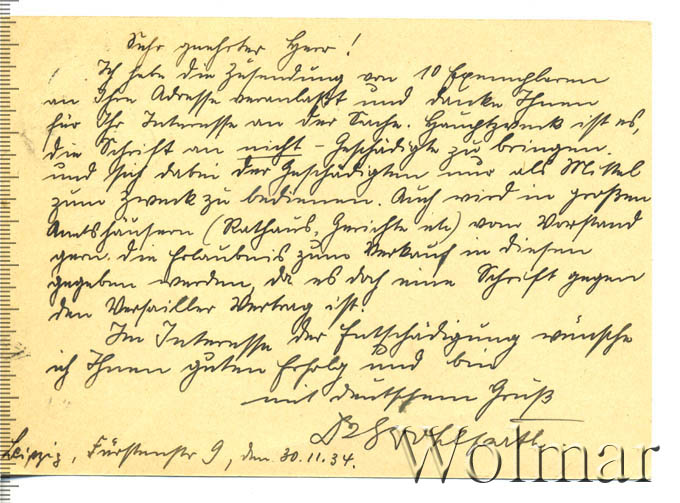 Sehr geehrter Herr!
Ich habe die Zusendung von 10 Exemplaren
an Ihre Adresse veranlaßt und danke Ihnen
für Ihr Interesse an der Sache. Hauptzweck ist es,
die Schrift an nicht - Geschädigte zu bringen.
und sich dabei der Geschädigten nur als Mittel
zum Zweck zu bedienen. Auch wird in großen
Amtshäusern (Rathaus, Gerichte etc) vom Vorstand
gern die Erlaubnis zum Verkauf in diesen
gegeben werden, da es doch eine Schrift gegen
den Versailler Vertrag ist.
Im Interesse der Entschädigung wünsche
ich Ihnen guten Erfolg und bin
mit deutschem Gruß
Leipzig, Fürstenstr 9, den 30.11.34.
Wolmar